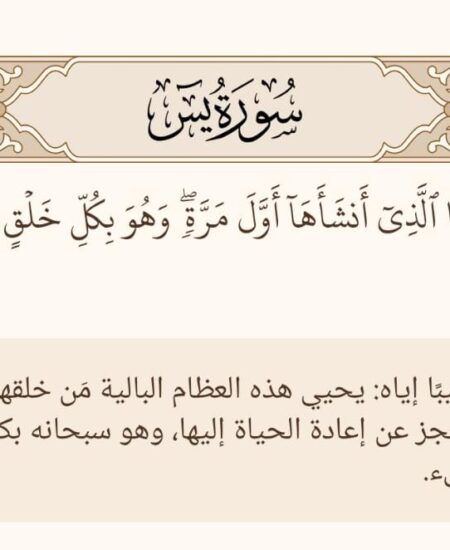 سُورَةُ يسٓ
ٱلَّذِىٓ أَنشَأَهَآ أَوَّلَ مَرَّةٍۢ ۖ وَهُوَ بِكُلِّ خَلْقٍ
إياه: يحيي هذه العظام البالية مَن خلقها
عن إعادة الحياة إليها، وهو سبحانه